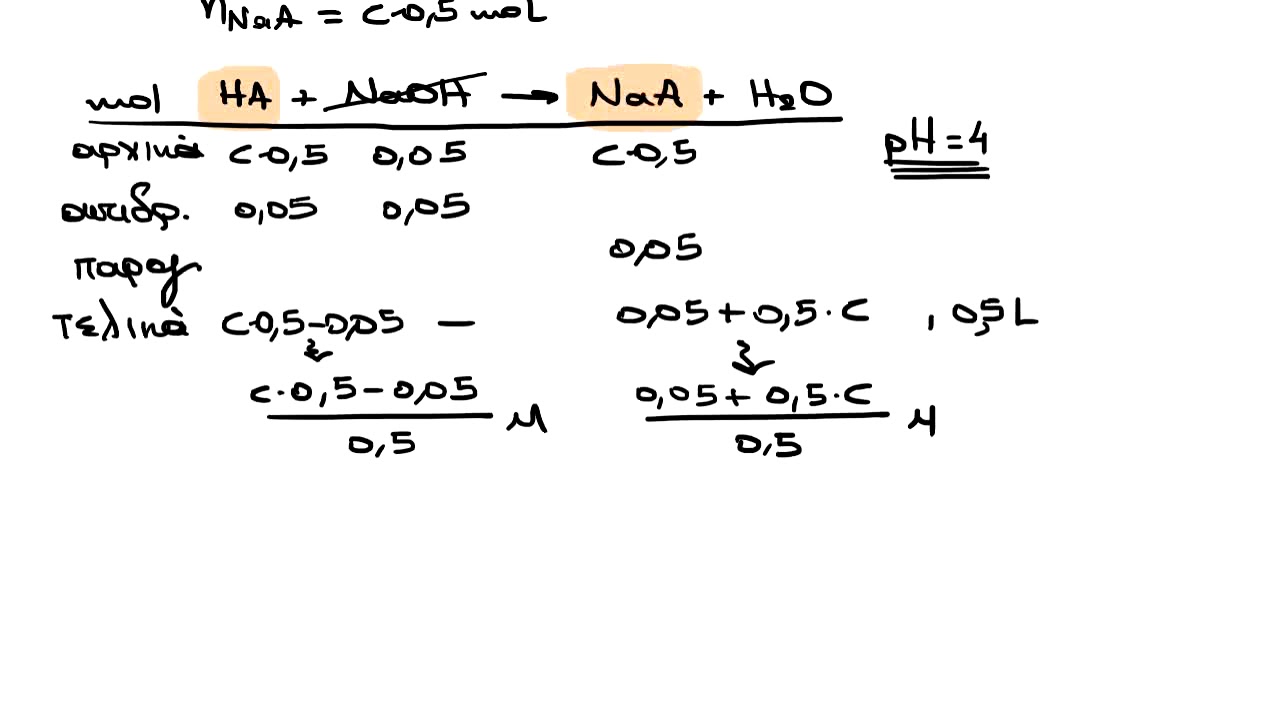 nNaA = C·0,5 mol
mol HA + NaOH → NaA + H2O
αρχικά C·0,5 0,05 C·0,5 pH = 4
αντιδρ. 0,05 0,05
παραγ 0,05
τελικά C·0,5-0,05 — 0,05 + 0,5·C , 0,5 L
C·0,5-0,05 / 0,5 M 0,05 + 0,5·C / 0,5 M